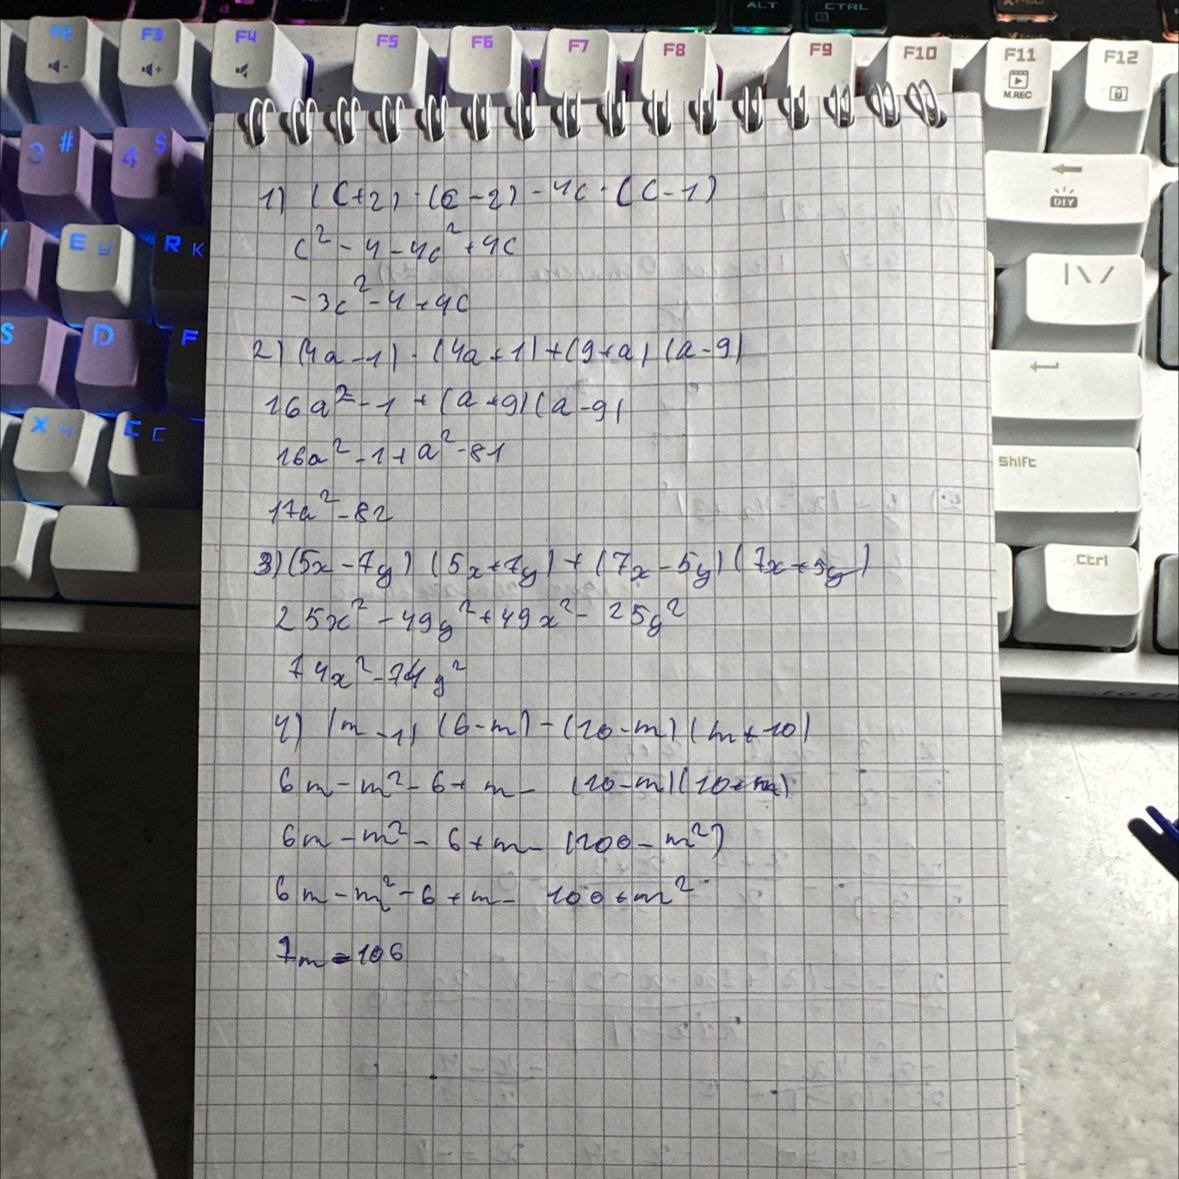 ALT CTRL
F2 F3 F4 F5 F6 F7 F8 F9 F10 F11 F12
M.REC
3 # 4 $
DIY
E y R K
| \ /
S D F
X C C
Shift
Ctrl
1) (c+2) · (c-2) - 4c · (c-1)
c² - 4 - 4c² + 4c
-3c² - 4 + 4c
2) (4a-1) · (4a+1) + (9+a) (a-9)
16a² - 1 + (a+9) (a-9)
16a² - 1 + a² - 81
17a² - 82
3) (5x-7y) (5x+7y) + (7x-5y) (7x+5y)
25x² - 49y² + 49x² - 25y²
74x² - 74y²
4) (m-1) (6-m) - (10-m) (m+10)
6m - m² - 6 + m - (10-m) (10+m)
6m - m² - 6 + m - (100 - m²)
6m - m² - 6 + m - 100 + m²
7m - 106